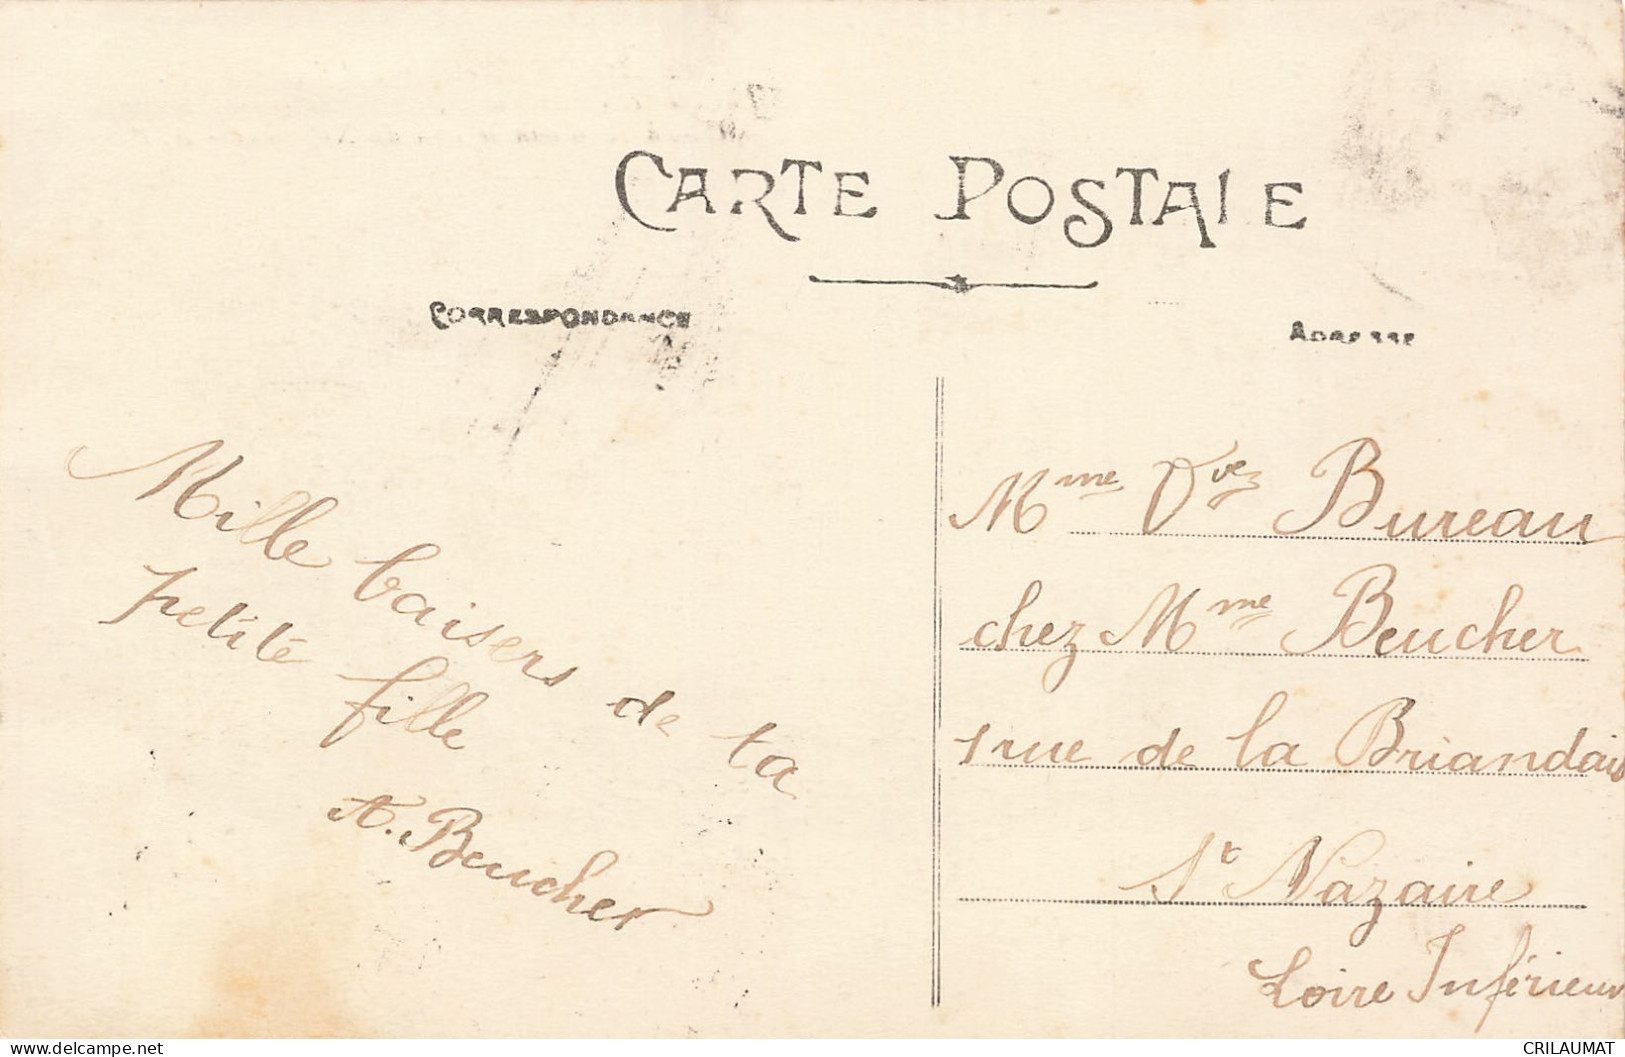 CARTE POSTALE
CORRESPONDANCE
ADRESSE
Mille baisers de ta
petite fille
A. Beucher
Mme Vve Bureau
chez Mme Beucher
1 rue de la Briandais
St Nazaire
Loire Inférieur
https://www.delcampe.net
CRILAUMAT